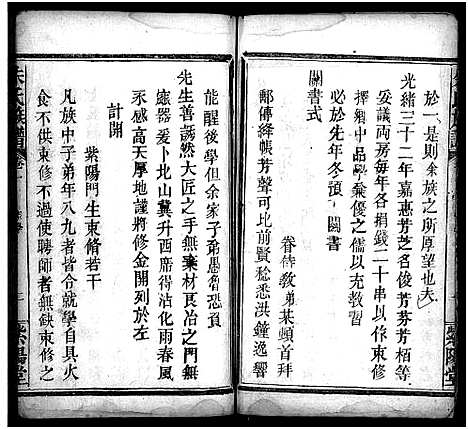 於一是則余族之所原望也夫
光緒三十二年嘉惠芳芝名俊芳芬芳桂等
妥議两房每年各捐錢二十串以作束修
擇卿中品學兼優之儒以充教習
必於先年冬預  関書
關書式
眷侍教弟某頓首拜
鄱傅絳帳芳聲可比前賢稔悉洪鐘逸響
能醒後學但余家子弟愚魯恐負
先生善誘然大匠之手無棄材良冶之門無
應器爰卜北山冀升西席得沾化雨春風
永感高天厚地謹將修金開列於左
計開
紫陽門生束脩若干
凡族中子弟年八九者皆令就學自具火
食不供束修不過使聘師者無缺束修之
朱氏族譜
紫陽堂
紫陽堂